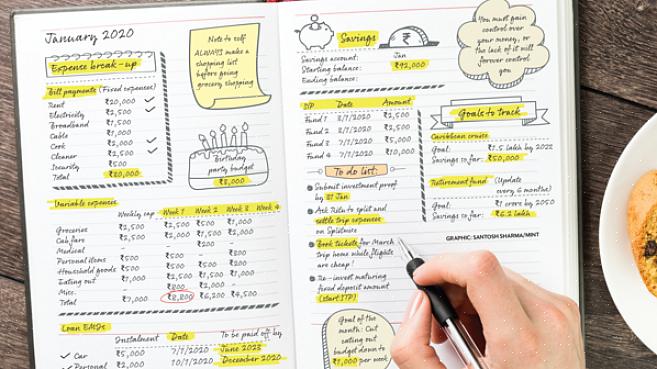 January 2020
Expense break-up
Bill payments (Fixed expenses)
Rent ₹20,000
Electricity ₹2,500
Broadband ₹1,500
Cable ₹1,000
Cook ₹2,000
Cleaner ₹2,500
Security ₹500
Total ₹30,000
Note to self
ALWAYS make a
shopping list
before going
grocery shopping
Birthday
party budget
₹8,000
Variable expenses
Weekly cap Week 1 Week 2 Week 3 Week 4
Groceries ₹2,500 ₹2,500 ₹2,500 ₹2,500
Cab fare ₹2,000 ₹2,000 ₹1,500 ₹2,000
Medical - - ₹200 -
Personal items ₹500 ₹500 - -
Household goods ₹500 ₹500 ₹200 -
Eating out ₹1,000 ₹2,500 ₹1,000
Misc. ₹2,000 -
Total ₹7,000 ₹8,800 ₹6,200 ₹4,500
Loan EMIs
Instalment Date To be paid off by
Car ₹5,000 7/1/2020 June 2023
Personal ₹2,000 10/1/2020 December 2020
Savings
Savings account: Jan
Starting balance: ₹92,000
Ending balance:
You must gain
control over
your money, or
the lack of it will
forever control
you
SIP Date Amount
Fund 1 3/1/2020 ₹2,500
Fund 2 ₹2,500
Fund 3 7/1/2020 ₹5,000
Fund 4 7/1/2020 ₹10,000
Goals to track
Caribbean cruise
Goal: ₹1.5 lakh by 2022
Savings so far: ₹50,000
Retirement fund (Update
every 6 months)
Goal: ₹1 crore by 2050
Savings so far: ₹6.2 lakh
GRAPHIC: SANTOSH SHARMA/MINT
To do list:
Submit investment proof
by 31 Jan
Ask Ritu to split and
settle trip expenses
on Splitwise
Book tickets for March
trip home while flights
are cheap!
Re-invest maturing
fixed deposit amount
(start STP)
Goal of the
month: Cut
eating out
budget down to
₹1,000 per week